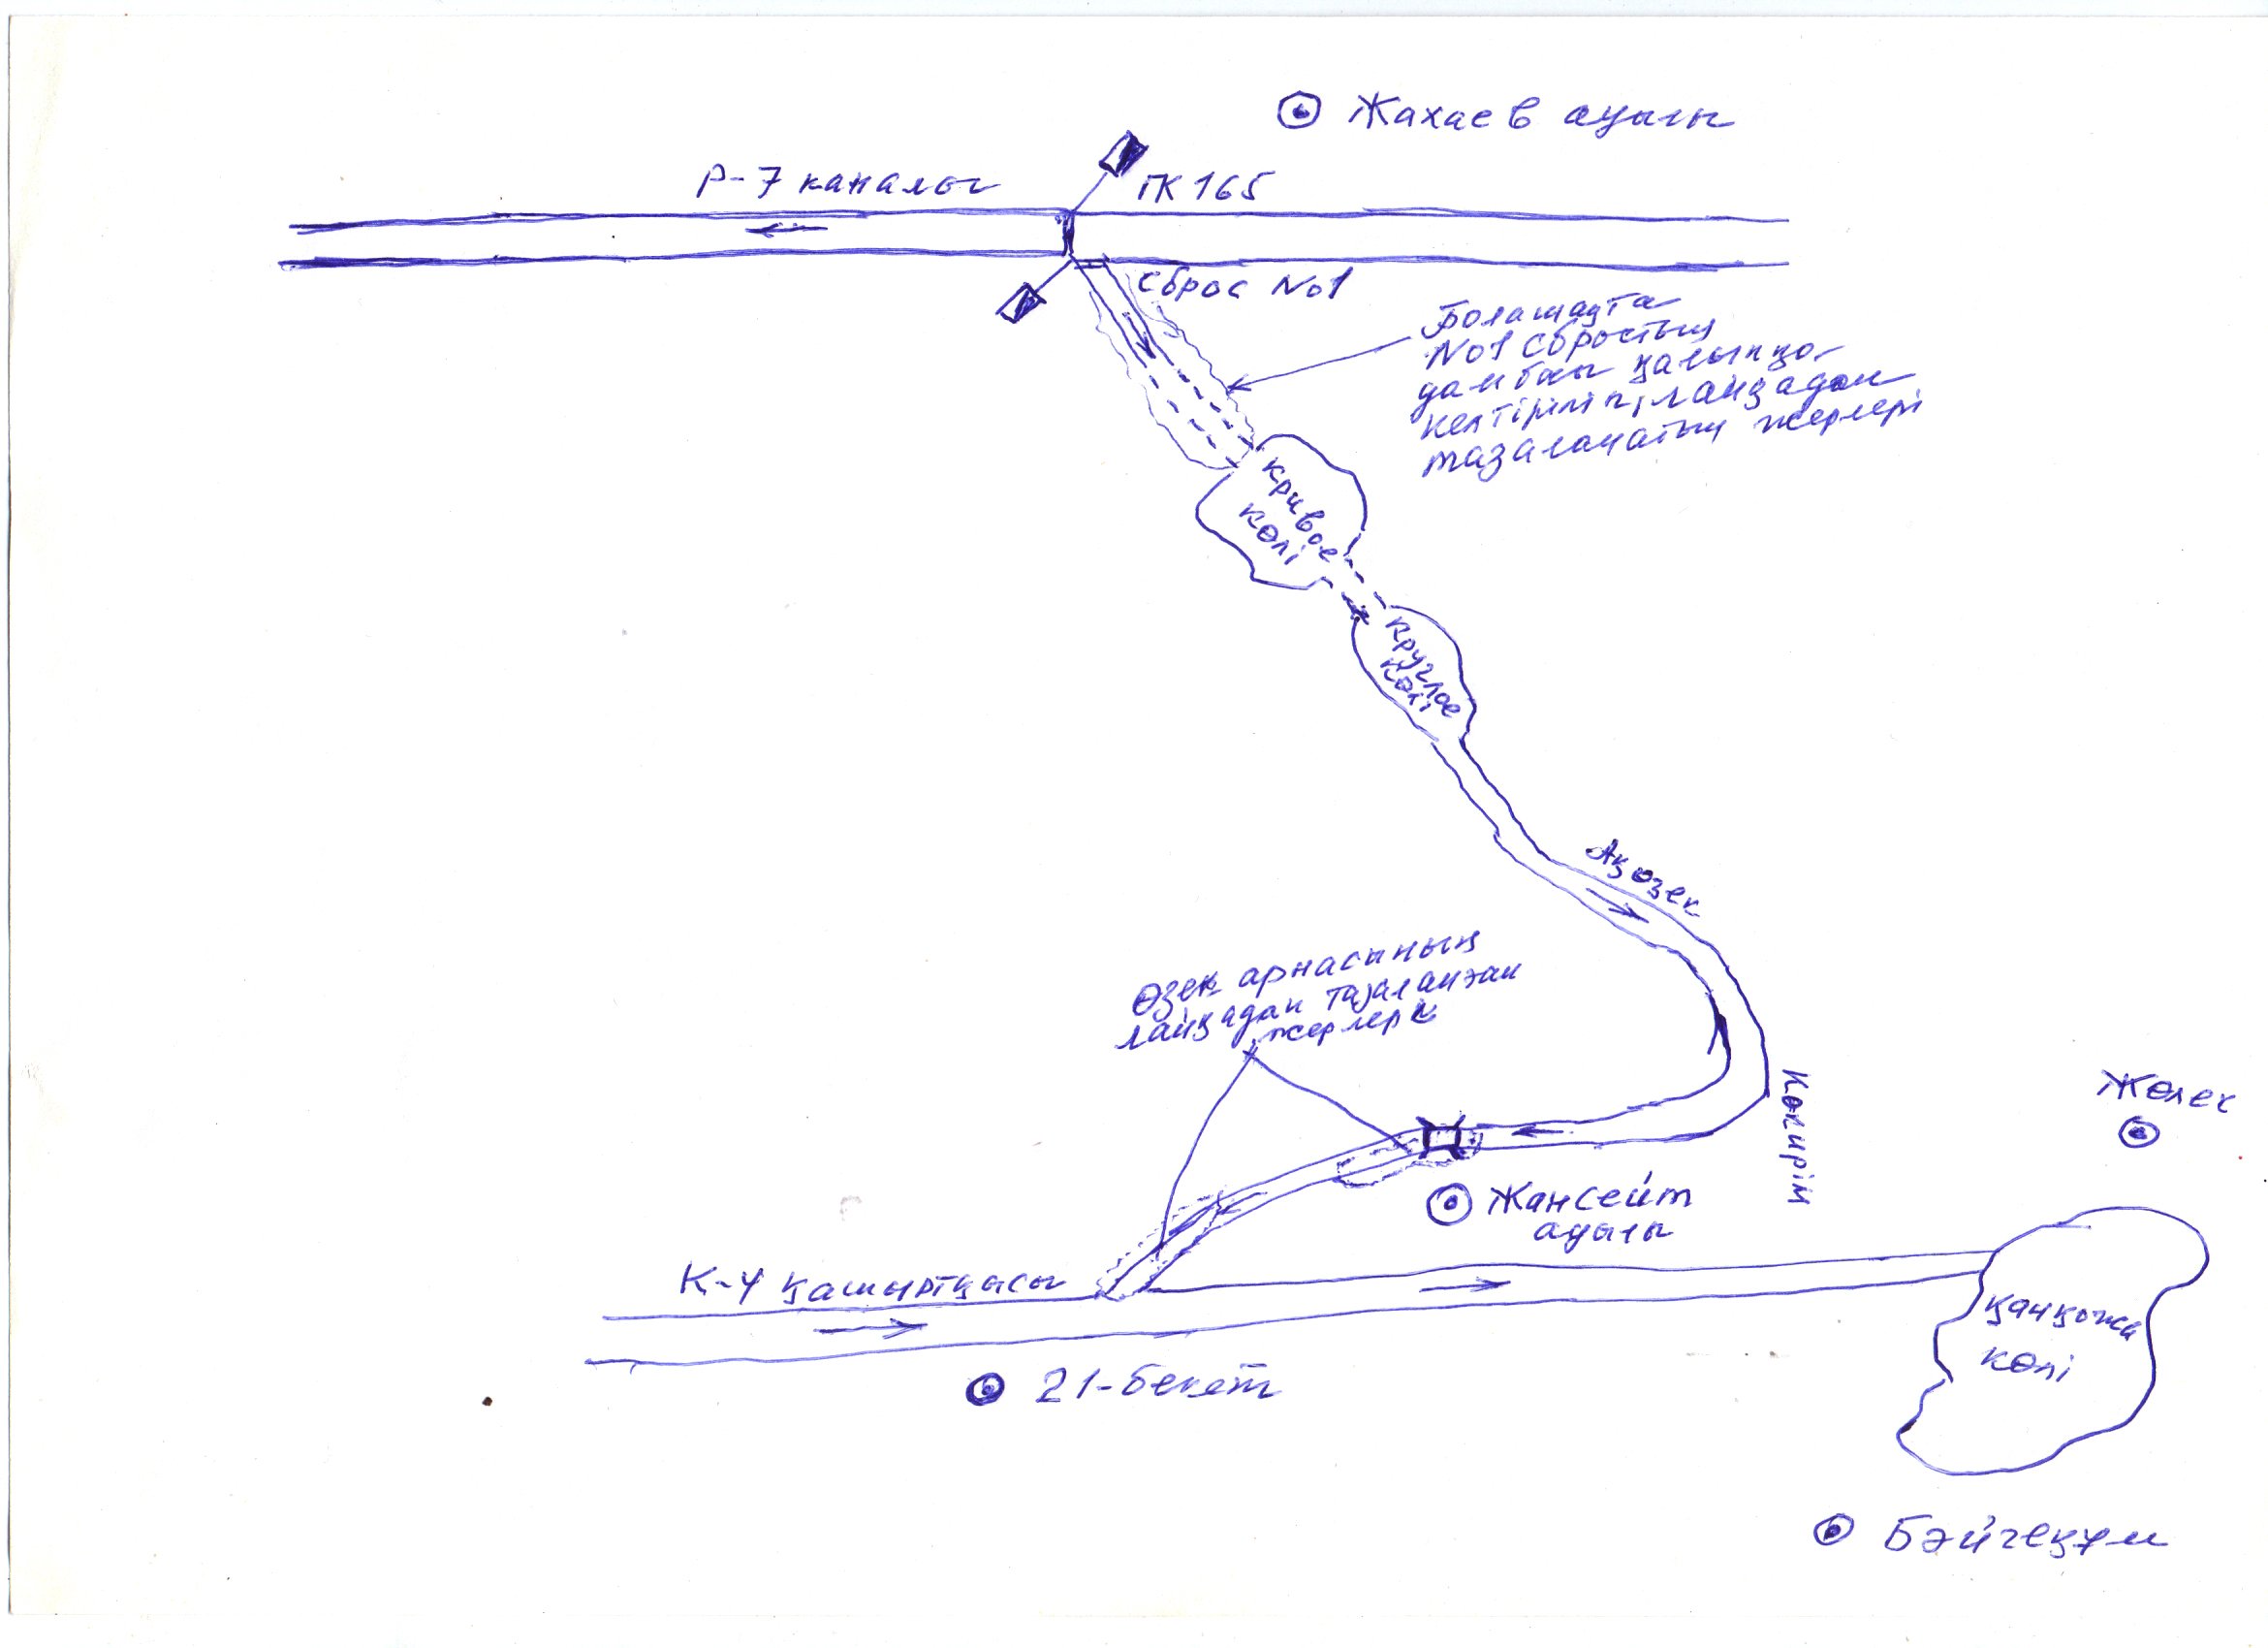 Жахаев ауылы
Р-7 каналы
ПК 165
Сброс №1
Болашақта
№1 Сбростың
дамбасы қалыпқа
келтіріліп, лайқадан
тазаланатын жерлері
Кривое
көлі
Круглое
көлі
Ақөзек
Өзек арнасының
лайқадан тазаланған
жерлері
Көпирім
Жөлек
Жансейт
ауылы
К-4 қашыртқысы
Қанқожа
көлі
21-бекет
Бәйгеқұм